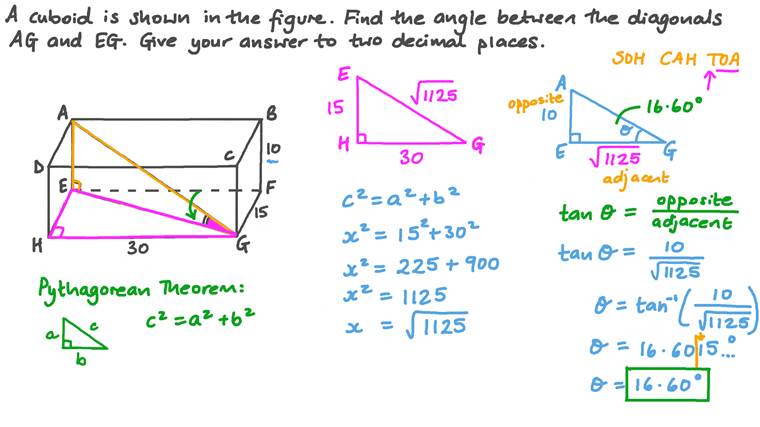 A cuboid is shown in the figure. Find the angle between the diagonals
AG and EG. Give your answer to two decimal places.
SOH CAH TOA
A
B
D
C
10
E
F
15
H
30
G
Pythagorean Theorem:
a
c
b
c² = a² + b²
E
15
√1125
H
30
G
c² = a² + b²
x² = 15² + 30²
x² = 225 + 900
x² = 1125
x = √1125
A
opposite
10
16.60°
θ
E
√1125
G
adjacent
tan θ = opposite / adjacent
tan θ = 10 / √1125
θ = tan⁻¹ (10 / √1125)
θ = 16.60|15...°
θ = 16.60°